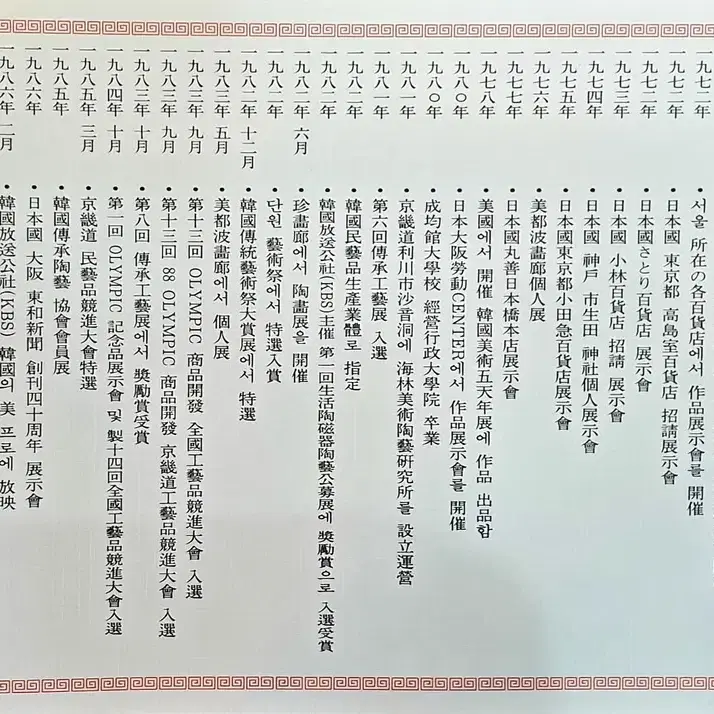 一九七二年 • 서울 所在의各百貨店에서 作品展示會를 開催
一九七二年 • 日本國 東京都 高島室百貨店 招請展示會
一九七二年 • 日本國さとり百貨店 展示會
一九七三年 • 日本國 小林百貨店 招請 展示會
一九七四年 • 日本國 神戶 市生田 神社個人展示會
一九七五年 • 日本國東京都小田急百貨店展示會
一九七六年 • 美都波畫廊個人展
一九七七年 • 日本國丸善日本橋本店展示會
一九七八年 • 美國에서 開催 韓國美術五天年展에 作品 出品함
一九八〇年 • 日本大阪勞動CENTER에서 作品展示會를 開催
一九八〇年 • 成均館大學校 經營行政大學院 卒業
一九八一年 • 京畿道利川市沙音洞에 海林美術陶藝硏究所를 設立運營
一九八一年 • 第六回傳承工藝展 入選
一九八二年 • 韓國民藝品生産業體로 指定
一九八二年 • 韓國放送公社(KBS)主催 第一回生活陶磁器陶藝公募展에 獎勵賞으로 入選受賞
一九八二年 六月 • 珍畫廊에서 陶畫展을 開催
一九八二年 • 단원 藝術祭에서 特選入賞
一九八二年 十二月 • 韓國傳統藝術祭大賞展에서 特選
一九八三年 五月 • 美都波畫廊에서 個人展
一九八三年 九月 • 第十三回 OLYMPIC 商品開發 全國工藝品競進大會 入選
一九八三年 九月 • 第十三回 88 OLYMPIC 商品開發 京畿道工藝品競進大會 入選
一九八三年 十月 • 第八回 傳承工藝展에서 獎勵賞受賞
一九八四年 十月 • 第一回 OLYMPIC 記念品展示會 및 製十四回全國工藝品競進大會入選
一九八五年 三月 • 京畿道 民藝品競進大會特選
一九八五年 • 韓國傳承陶藝 協會會員展
一九八六年 • 日本國 大阪 東和新聞 創刊四十周年 展示會
一九八六年 二月 • 韓國放送公社(KBS) 韓國의 美 프로에 放映